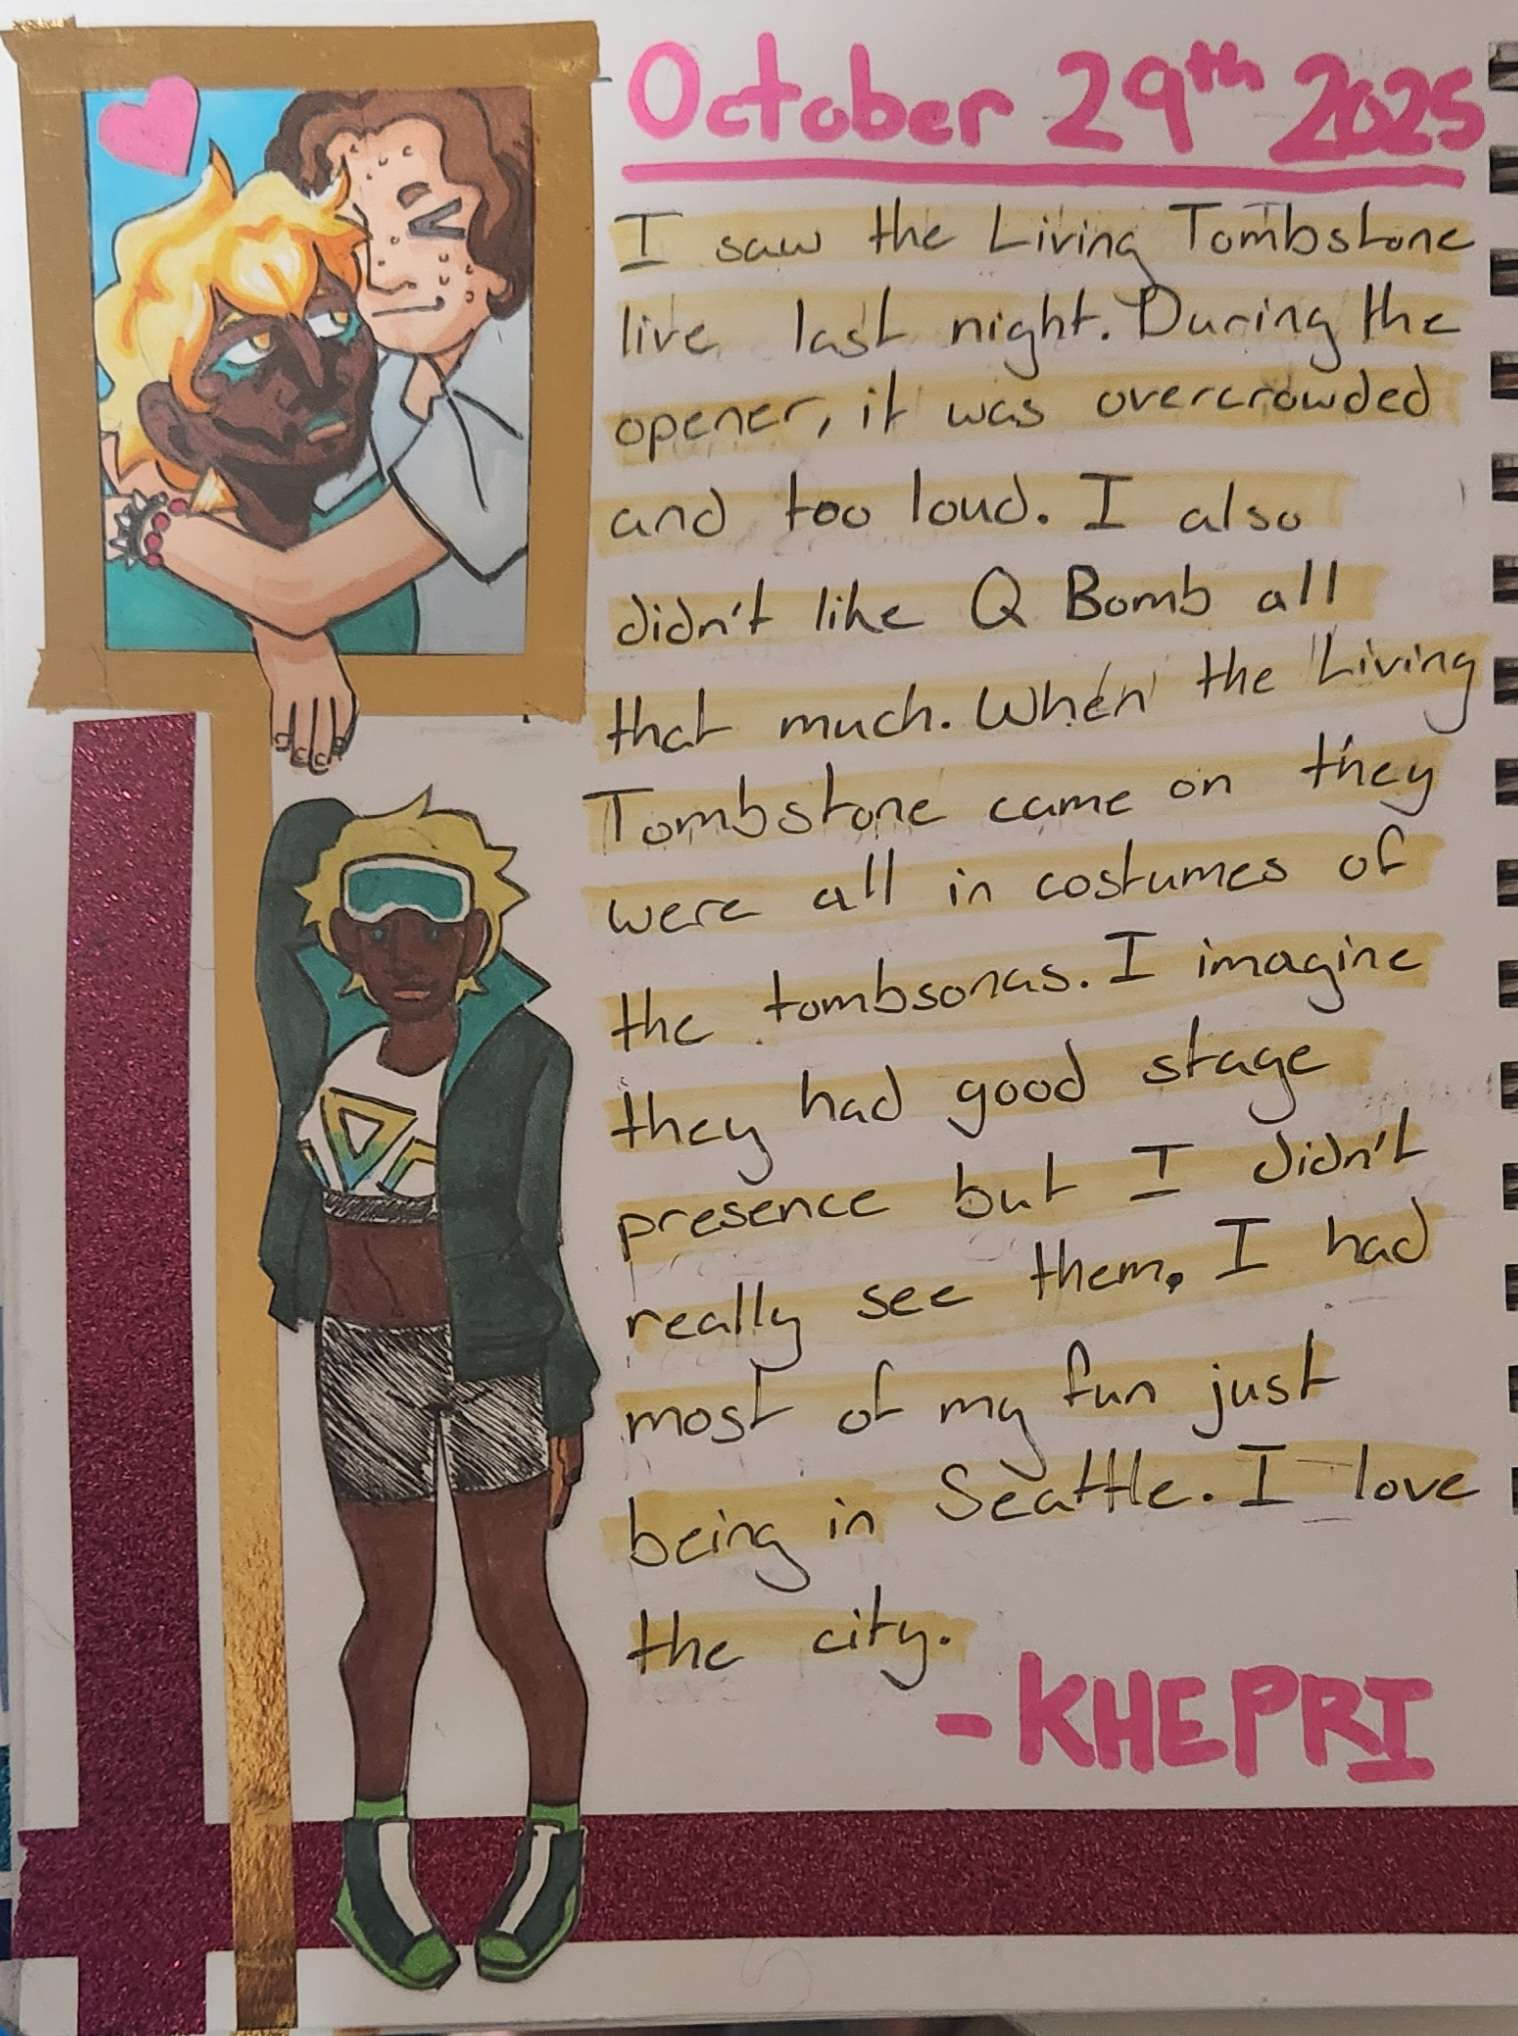 October 29th 2025
I saw the Living Tombstone
live last night. During the
opener, it was overcrowded
and too loud. I also
didn't like Q Bomb all
that much. When the Living
Tombstone came on they
were all in costumes of
the tombsonas. I imagine
they had good stage
presence but I didn't
really see them. I had
most of my fun just
being in Seattle. I love
the city.
- KHEPRI